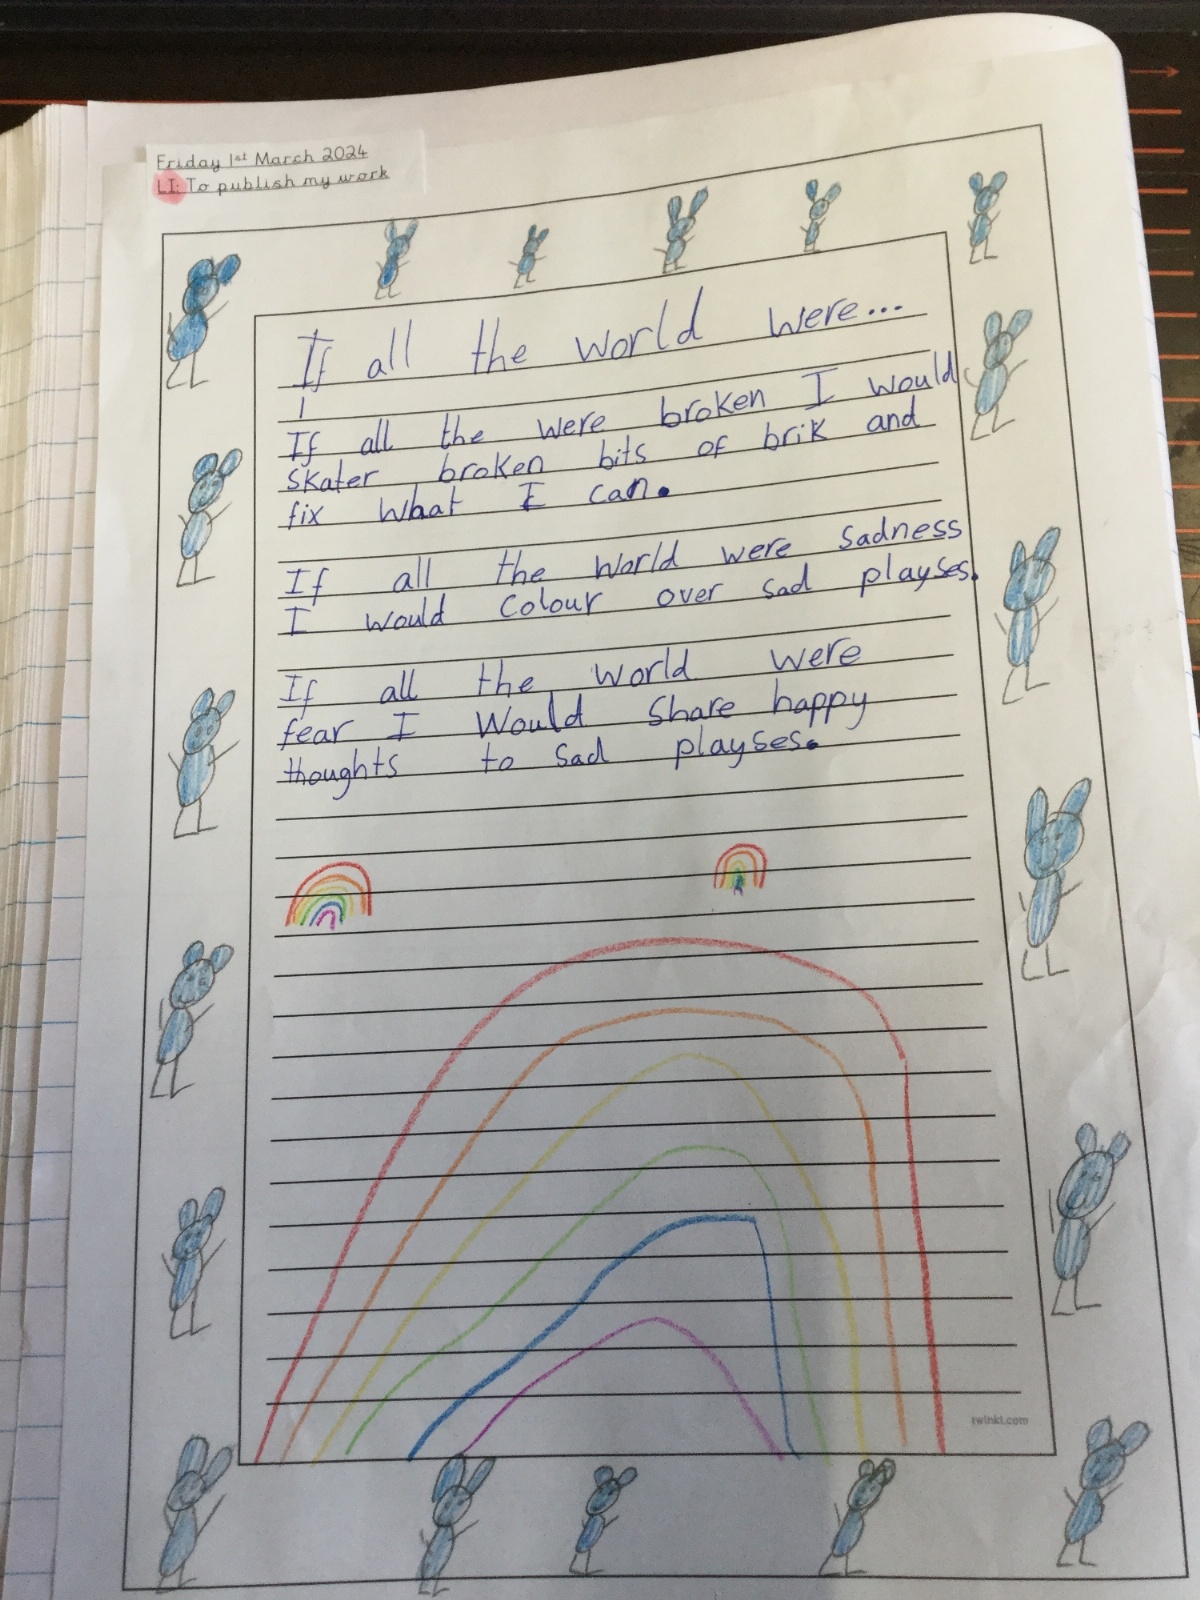 Friday 1st March 2024
LI: To publish my work
If all the world were...
If all the were broken I would
skater broken bits of brik and
fix what I can.
If all the world were sadness
I would colour over sad playses.
If all the world were
fear I would share happy
thoughts to sad playses.
twinkl.com